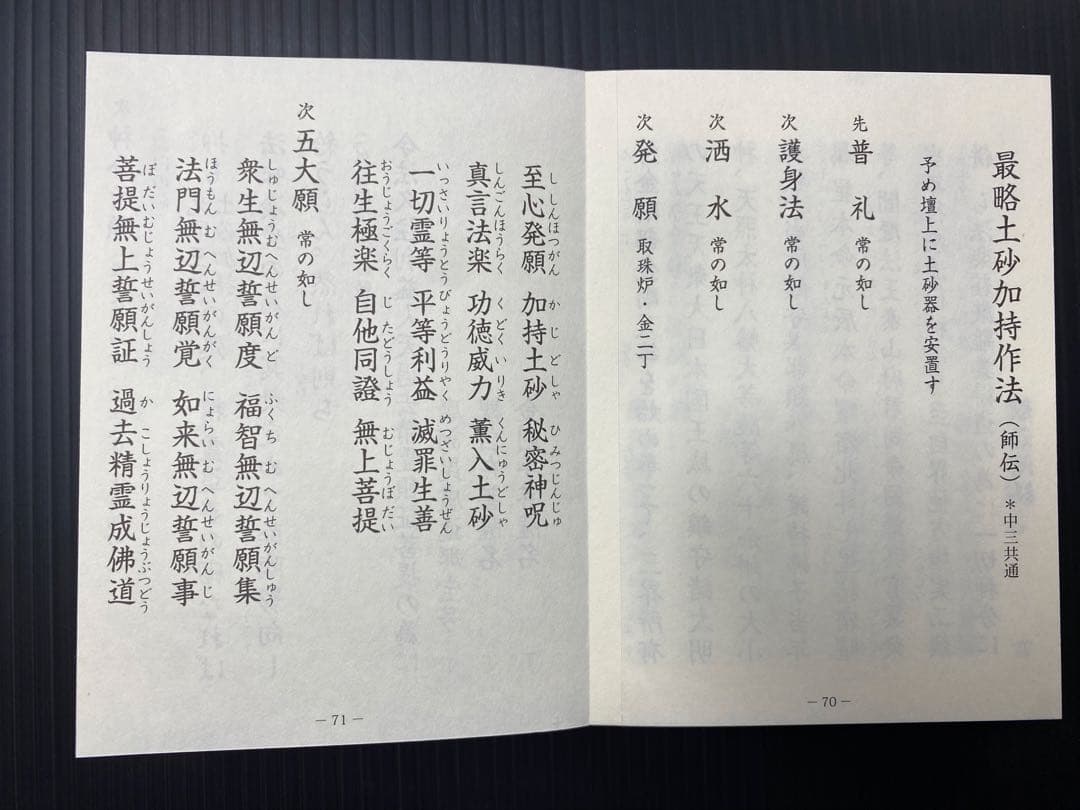 最略土砂加持作法（師伝）＊中三共通
予め壇上に土砂器を安置す
先 普礼 常の如し
次 護身法 常の如し
次 洒水 常の如し
次 発願 取珠炉・金二丁
－70－
至心発願 加持土砂 秘密神呪
ししんほつがん かじどしゃ ひみつじんじゅ
真言法楽 功徳威力 薫入土砂
しんごんほうらく くどくいりき くんにゅうどしゃ
一切霊等 平等利益 滅罪生善
いっさいりょうとう びょうどうりやく めつざいしょうぜん
往生極楽 自他同證 無上菩提
おうじょうごくらく じたどうしょう むじょうぼだい
次 五大願 常の如し
衆生無辺誓願度 福智無辺誓願集
しゅじょうむへんせいがんど ふくちむへんせいがんしゅう
法門無辺誓願覚 如来無辺誓願事
ほうもんむへんせいがんがく にょらいむへんせいがんじ
菩提無上誓願証 過去精霊成佛道
ぼだいむじょうせいがんしょう かこしょうりょうじょうぶつどう
－71－